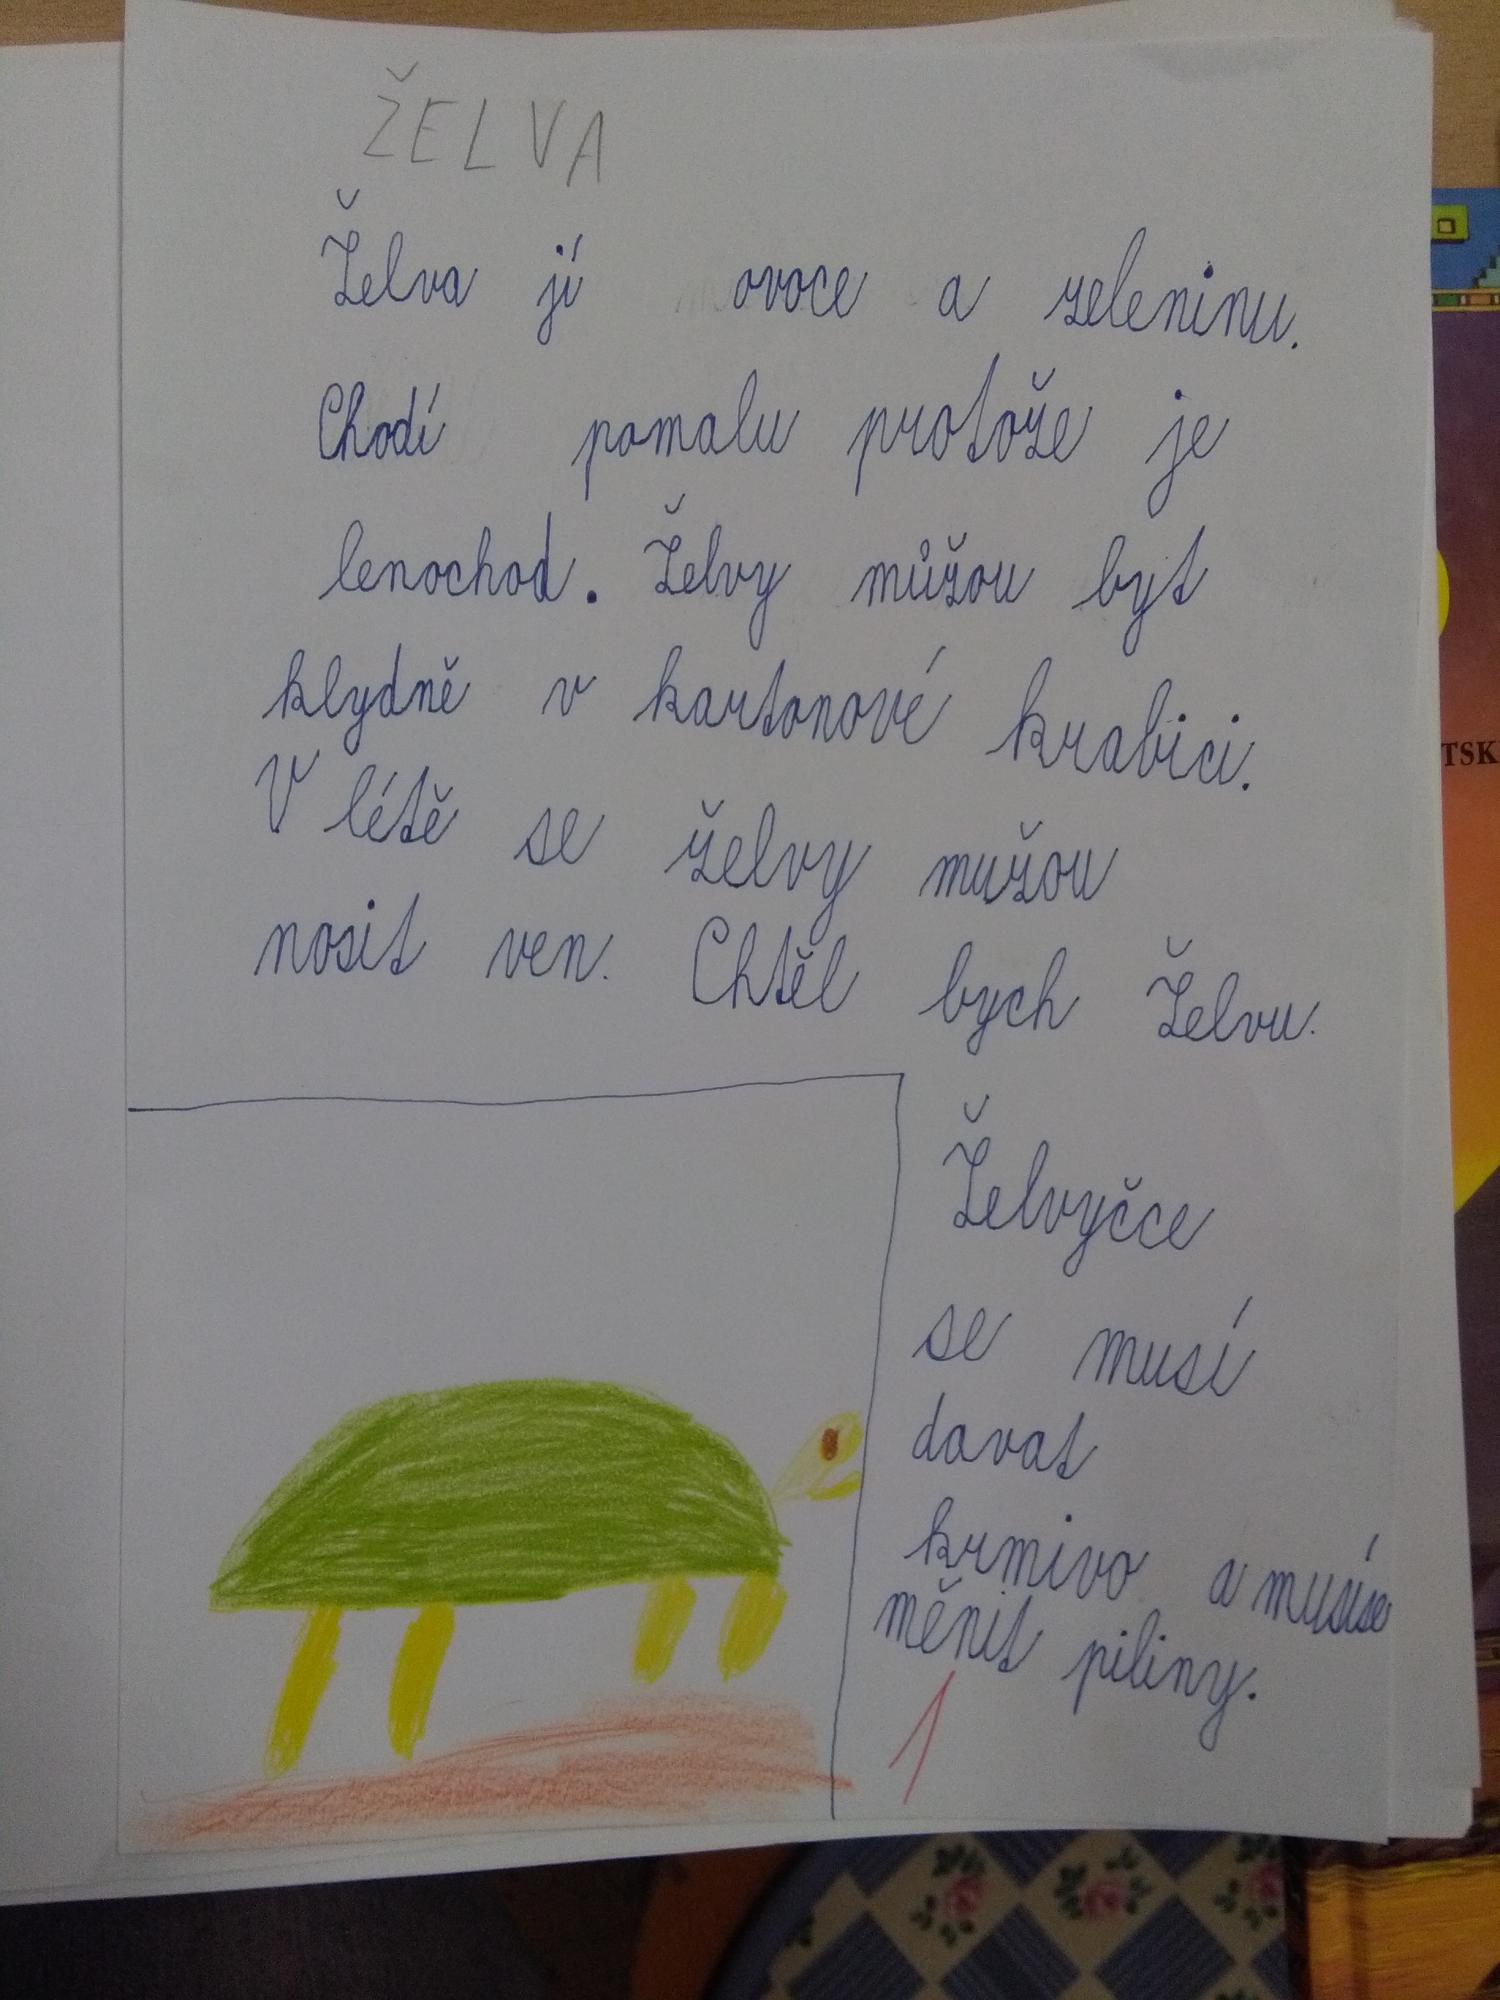 ŽELVA
Želva jí ovoce a zeleninu.
Chodí pomalu protože je
lenochod. Želvy můžou byt
klydně v kartonové krabici.
V létě se želvy mužou
nosit ven. Chtěl bych Želvu.
Želvyčce
se musí
davat
krmivo a musíse
měnit piliny.
1
TSK